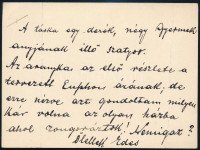 A táska egy derék, négy gyermek
anyjának illő szatyor.
Az aranyka az első részlete a
tervezett Euphon árának; de
erre nérve azt gondoltam milyen
kár volna az olyan házba
ahol zongoráztok! Nemigaz?
Ölellek Édes